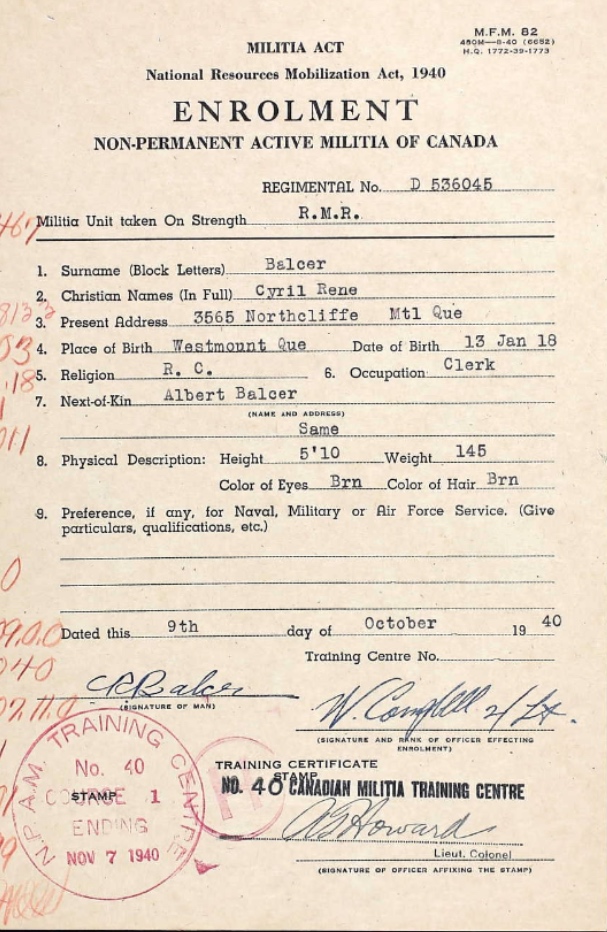 M.F.M. 82
450M—8-40 (6652)
H.Q. 1772-39-1773
MILITIA ACT
National Resources Mobilization Act, 1940
ENROLMENT
NON-PERMANENT ACTIVE MILITIA OF CANADA
REGIMENTAL No. D 536045
Militia Unit taken On Strength R.M.R.
1. Surname (Block Letters) Balcer
2. Christian Names (In Full) Cyril Rene
3. Present Address 3565 Northcliffe Mtl Que
4. Place of Birth Westmount Que Date of Birth 13 Jan 18
5. Religion R. C. 6. Occupation Clerk
7. Next-of-Kin Albert Balcer
(NAME AND ADDRESS)
Same
8. Physical Description: Height 5'10 Weight 145
Color of Eyes Brn Color of Hair Brn
9. Preference, if any, for Naval, Military or Air Force Service. (Give
particulars, qualifications, etc.)
Dated this 9th day of October 19 40
Training Centre No.
CRBalcer
(SIGNATURE OF MAN)
W. Campbell 2/Lt.
(SIGNATURE AND RANK OF OFFICER EFFECTING
ENROLMENT)
N.P.A.M. TRAINING CENTRE
No. 40
STAMP
COURSE 1
ENDING
NOV 7 1940
M
TRAINING CERTIFICATE
STAMP
NO. 40 CANADIAN MILITIA TRAINING CENTRE
Howard
Lieut. Colonel
(SIGNATURE OF OFFICER AFFIXING THE STAMP)